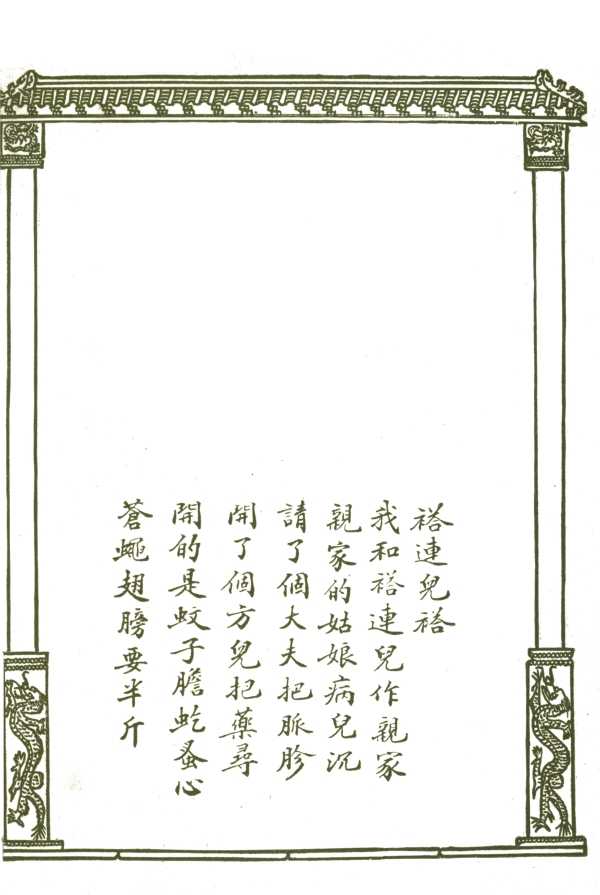 褡連兒褡
我和褡連兒作親家
親家的姑娘病兒沉
請了個大夫把脈胗
開了個方兒把藥尋
開的是蚊子膽虼蚤心
蒼蠅翅膀要半斤